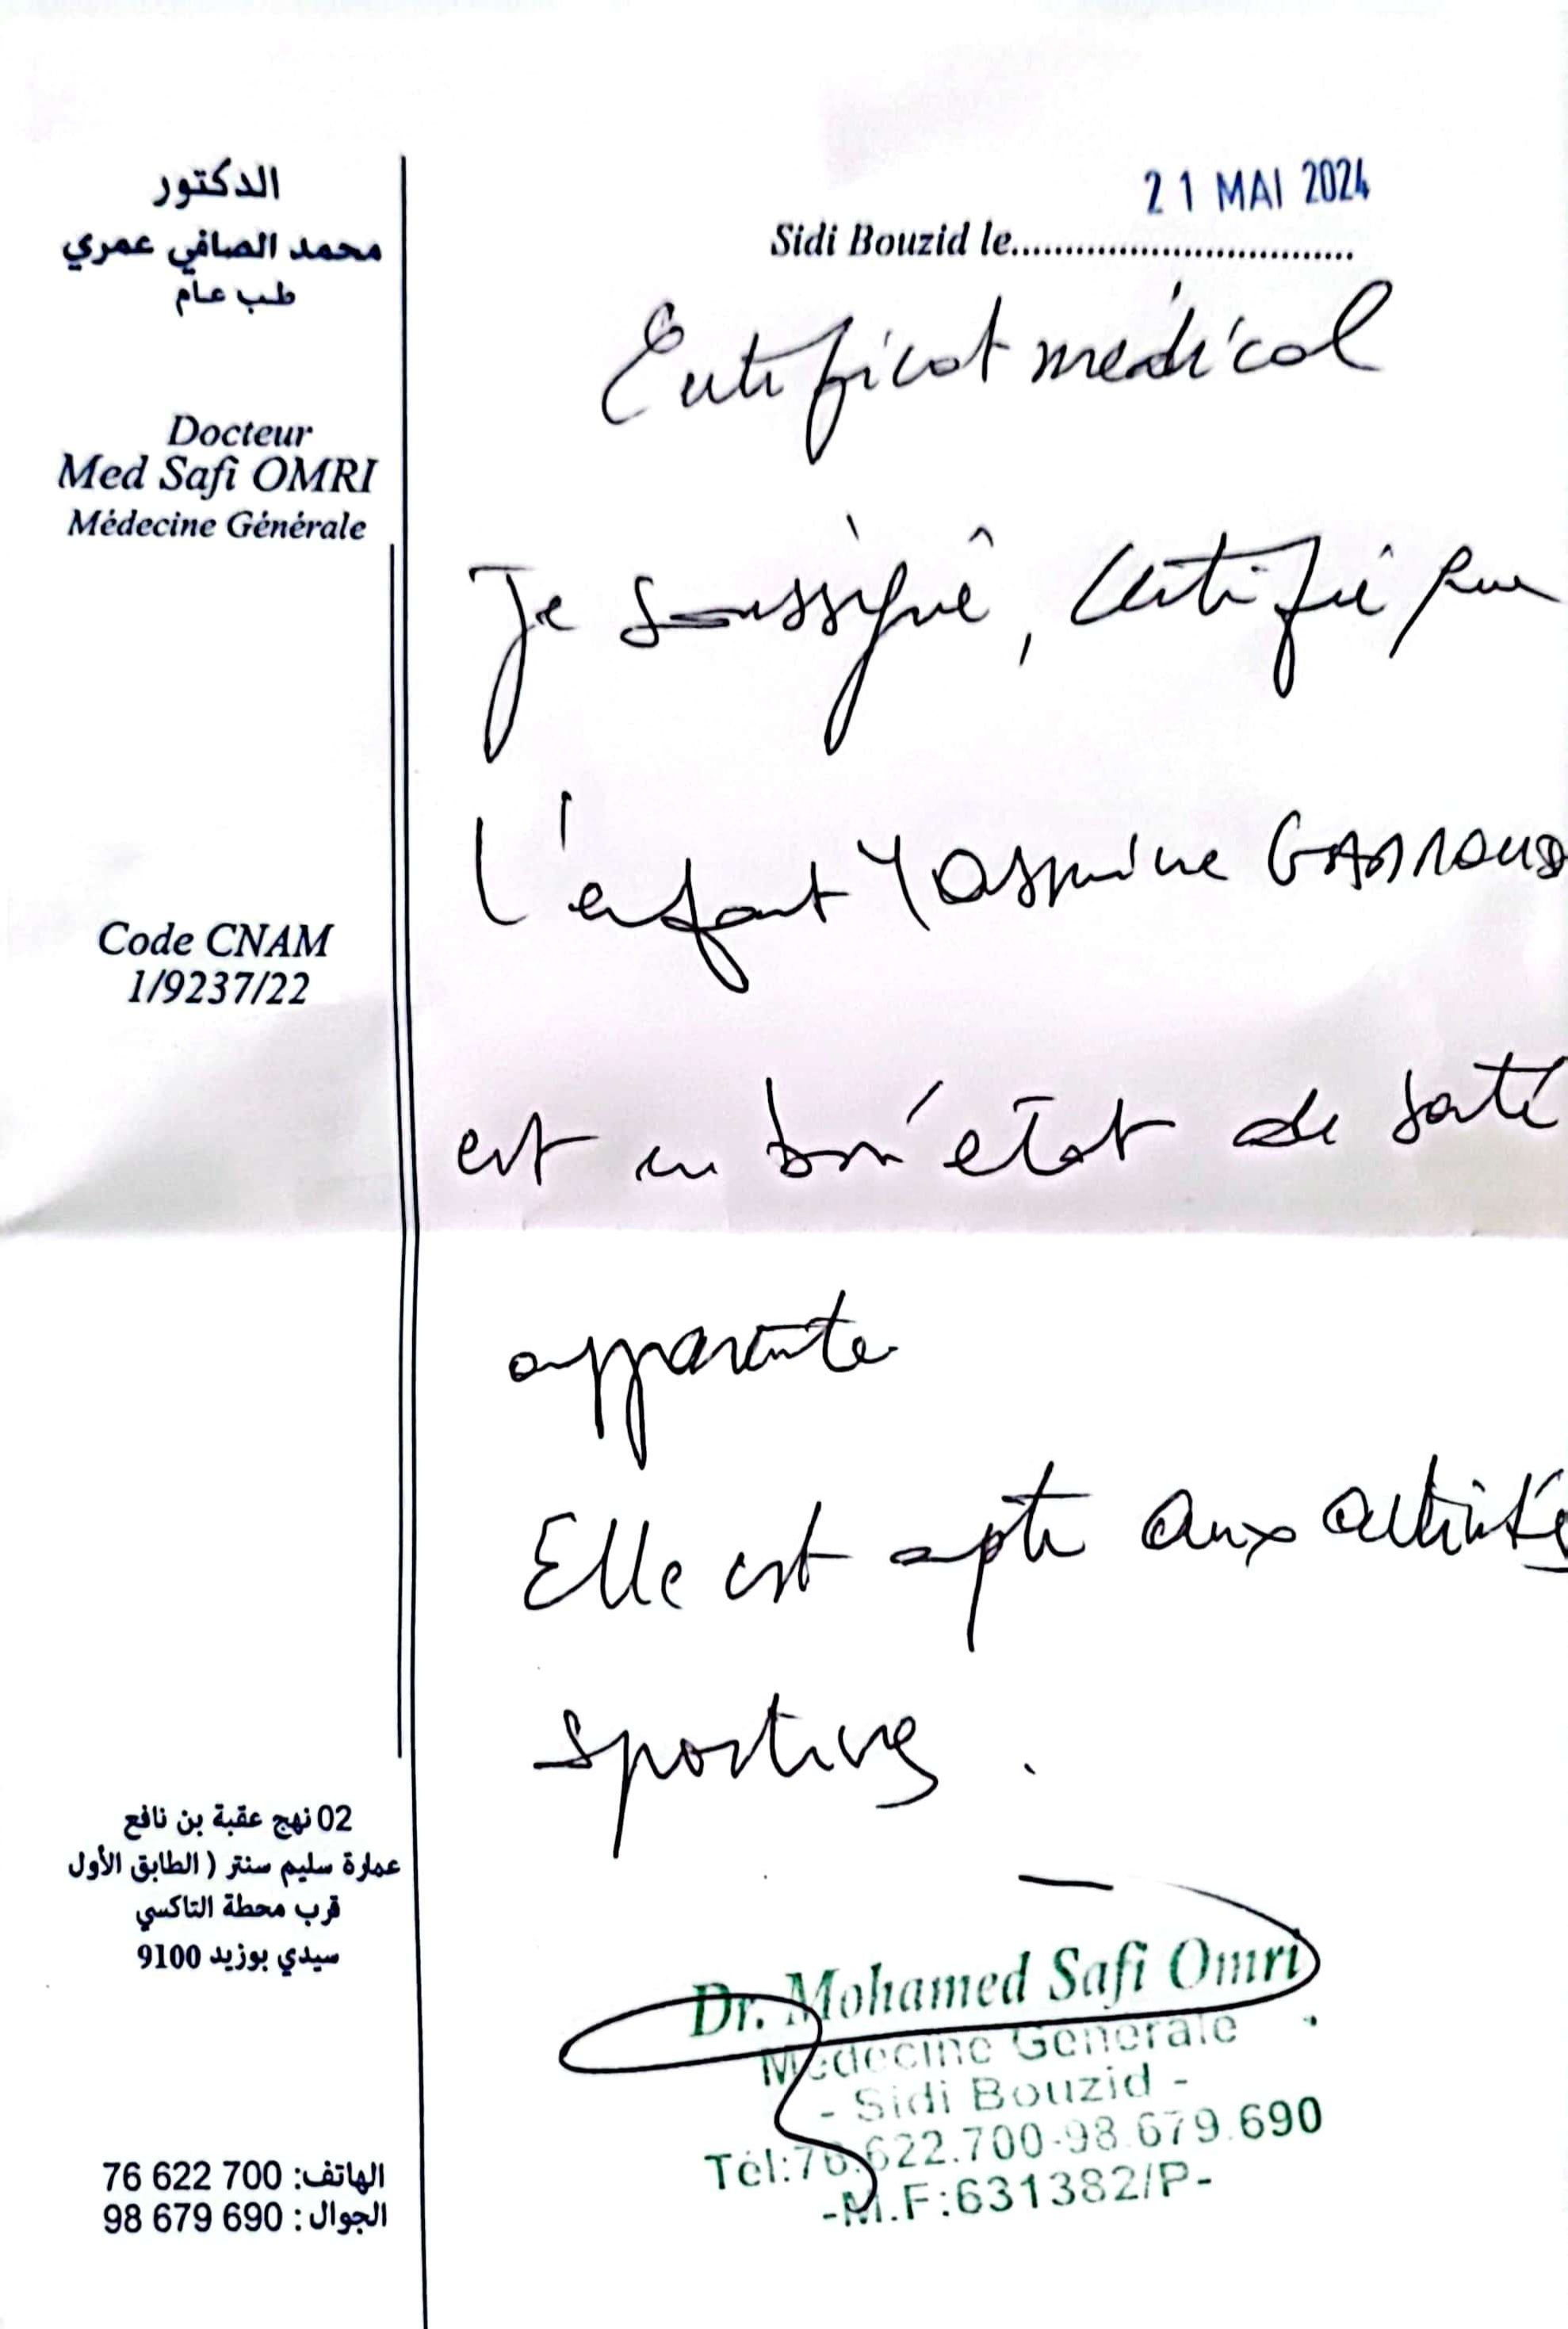 الدكتور
محمد الصافي عمري
طب عام
Docteur
Med Safi OMRI
Médecine Générale
Code CNAM
1/9237/22
02 نهج عقبة بن نافع
عمارة سليم سنتر ( الطابق الأول
قرب محطة التاكسي
سيدي بوزيد 9100
الهاتف: 76 622 700
الجوال: 98 679 690
21 MAI 2024
Sidi Bouzid le
Certificat médical
Je soussigné, certifie que
l'enfant Yasmine
est en bon état de santé
apparente
Elle est apte aux activités
sportives.
Dr. Mohamed Safi Omri
Médecine Générale
- Sidi Bouzid -
Tél:76.622.700-98.679.690
-M.F:631382/P-